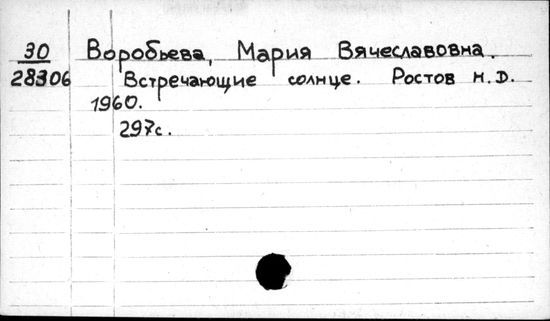 30 Воробьева, Мария Вячеславовна.
28306 Встречающие солнце. Ростов н.Д.
1960.
297с.